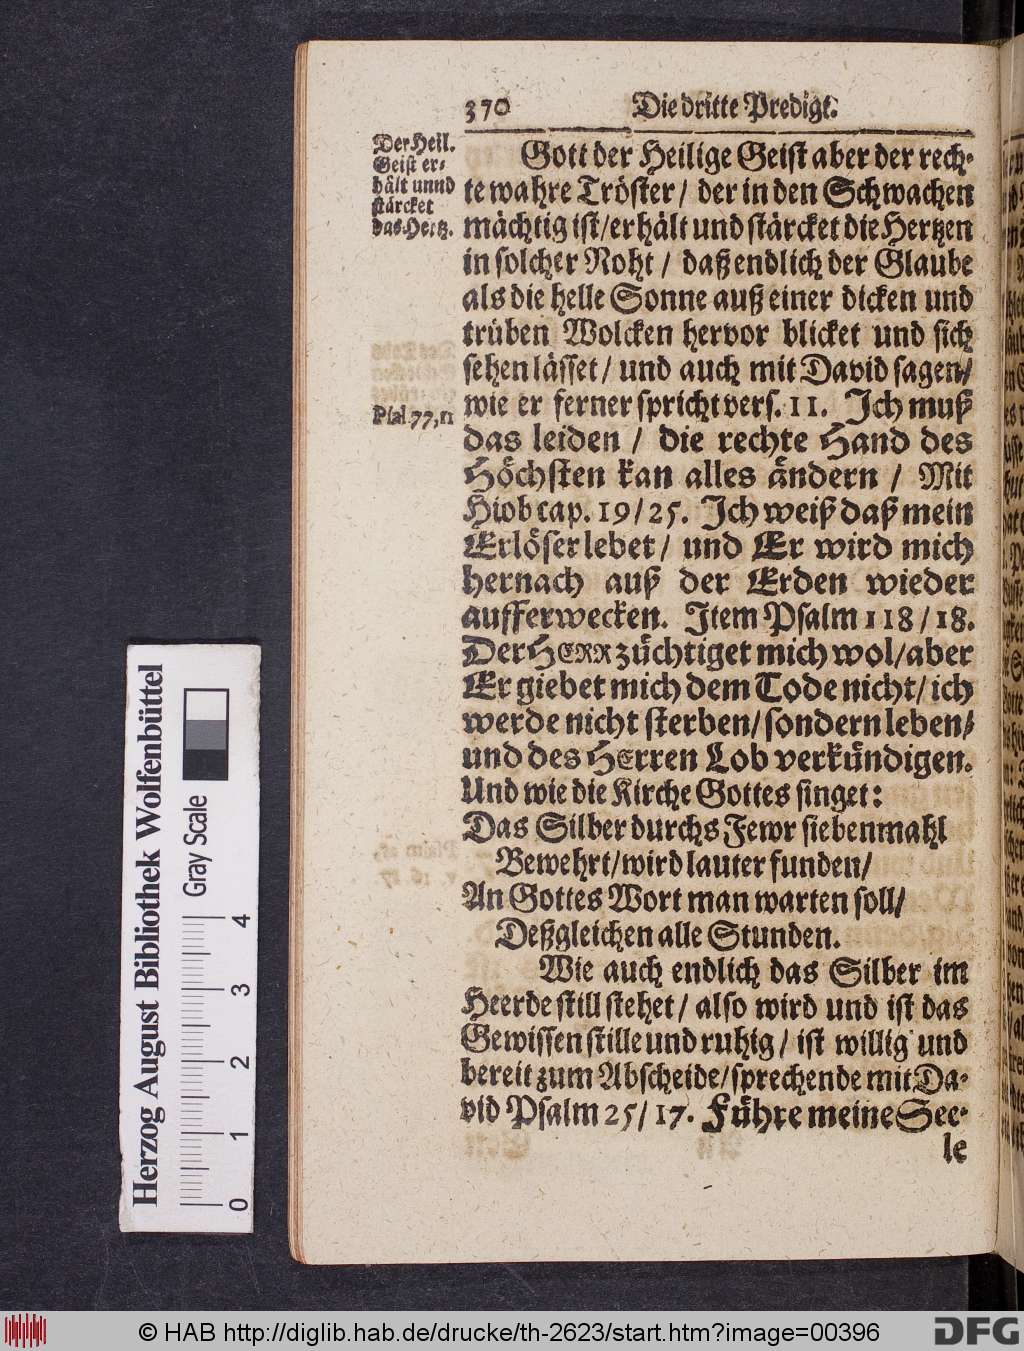 370 Die dritte Predigt.
Der Heil.
Geist er-
hält unnd
stärcket
das Hertz.
Gott der Heilige Geist aber der rech-
te wahre Tröster / der in den Schwachen
mächtig ist / erhält und stärcket die Hertzen
in solcher Noht / daß endlich der Glaube
als die helle Sonne auß einer dicken und
trüben Wolcken hervor blicket und sich
sehen lässet / und auch mit David sagen /
Psal. 77, 11
wie er ferner spricht vers. 11. Ich muß
das leiden / die rechte Hand des
Höchsten kan alles ändern / Mit
Hiob cap. 19 / 25. Ich weiß daß mein
Erlöser lebet / und Er wird mich
hernach auß der Erden wieder
aufferwecken. Item Psalm 118 / 18.
Der HERR züchtiget mich wol / aber
Er giebet mich dem Tode nicht / ich
werde nicht sterben / sondern leben /
und des HErren Lob verkündigen.
Und wie die Kirche Gottes singet:
Das Silber durchs Fewr siebenmahl
Bewehrt / wird lauter funden /
An Gottes Wort man warten soll /
Deßgleichen alle Stunden.
Wie auch endlich das Silber im
Heerde still stehet / also wird und ist das
Gewissen stille und ruhig / ist willig und
bereit zum Abscheide / sprechende mit Da-
vid Psalm 25 / 17. Führe meine See-
le
Herzog August Bibliothek Wolfenbüttel
Gray Scale
0 1 2 3 4
© HAB http://diglib.hab.de/drucke/th-2623/start.htm?image=00396
DFG